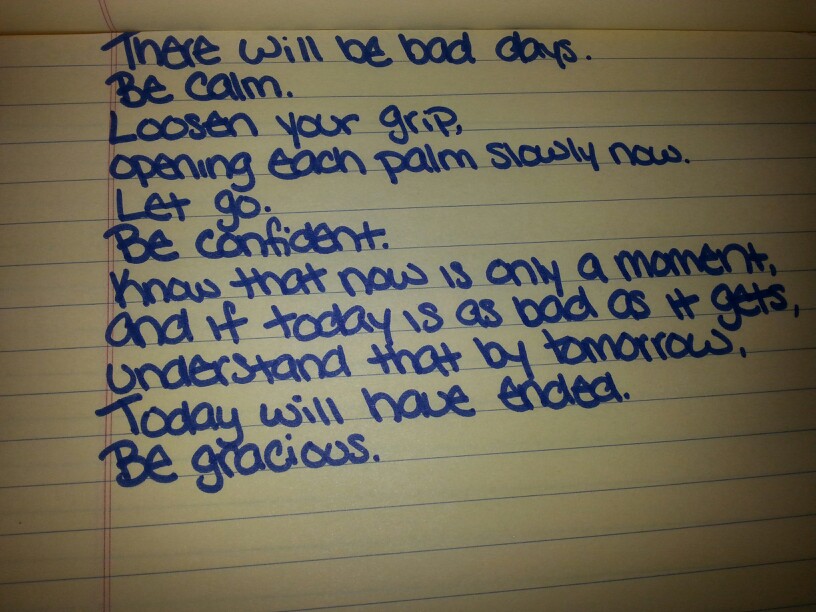 There will be bad days.
Be calm.
Loosen your grip,
opening each palm slowly now.
Let go.
Be confident.
Know that now is only a moment,
and if today is as bad as it gets,
understand that by tomorrow,
Today will have ended.
Be gracious.